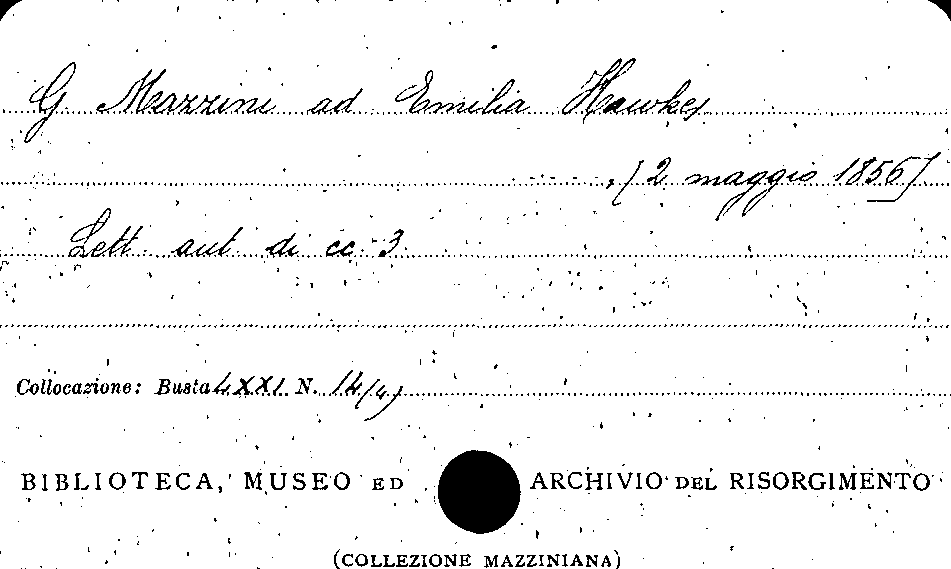 G Mazzini ad Emilia Hawkes
[2 maggio 1856]
Lett. aut. di cc. 3
Collocazione: Busta LXXI N. 14/4)
BIBLIOTECA, MUSEO ED ARCHIVIO DEL RISORGIMENTO
(COLLEZIONE MAZZINIANA)